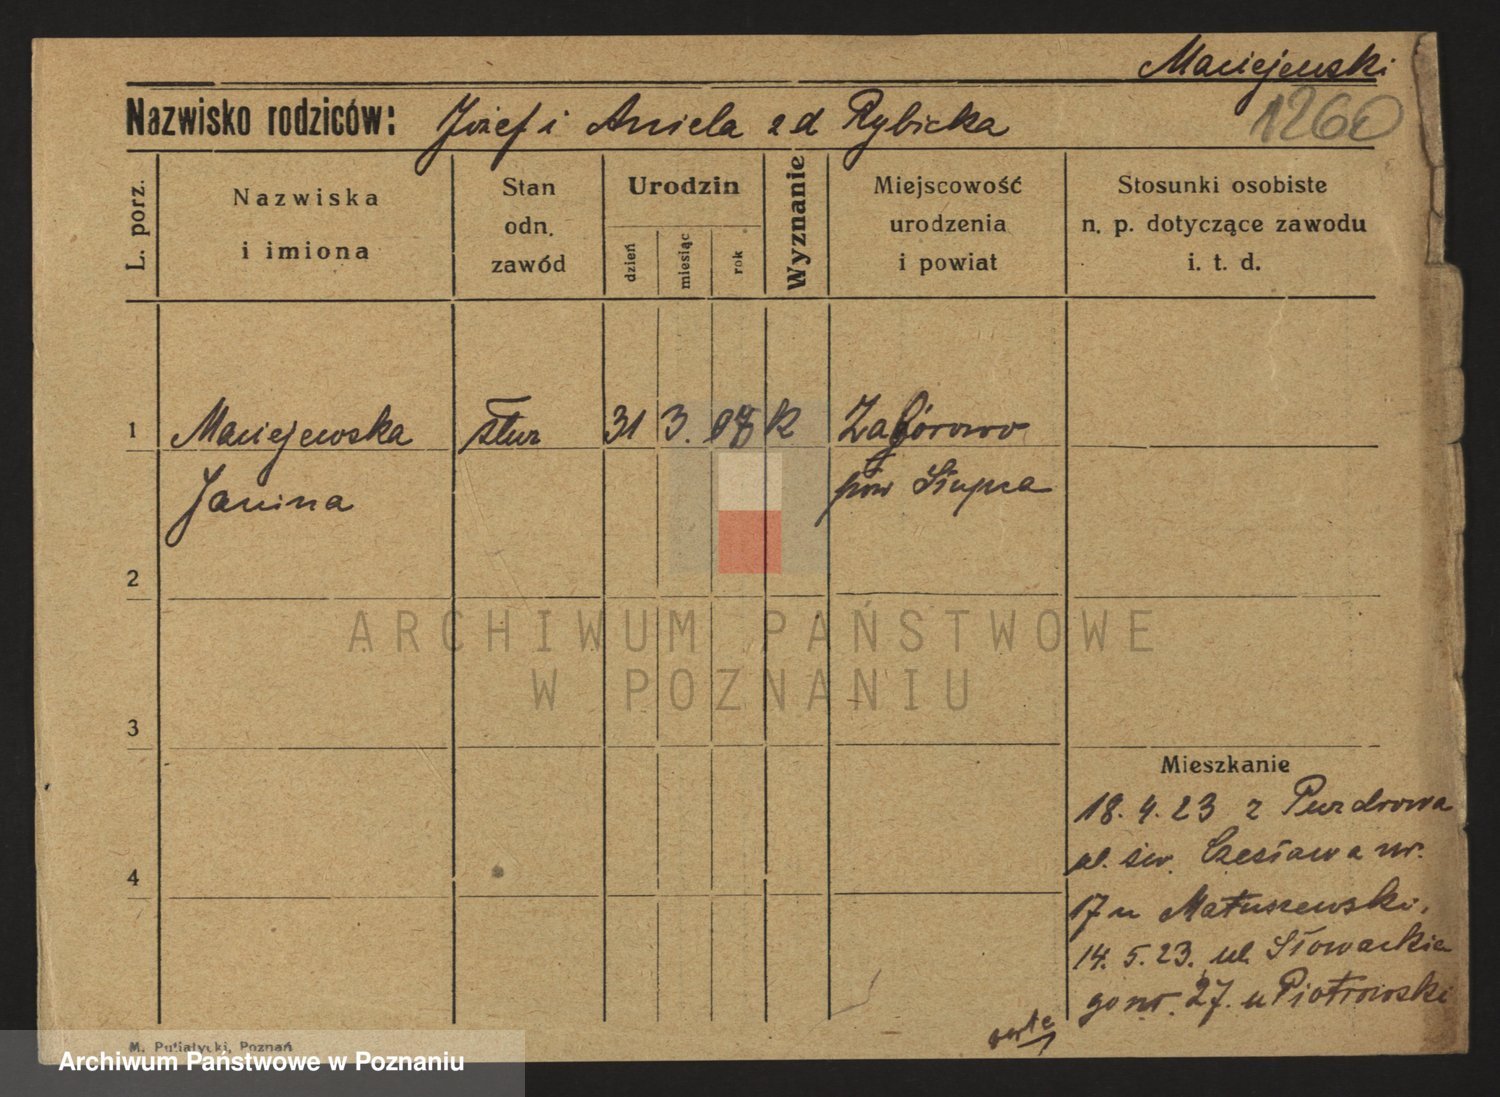 Maciejewski
1260
Nazwisko rodziców: Józef i Aniela z d Rybicka
L. porz.
Nazwiska
i imiona
Stan
odn.
zawód
Urodzin
dzień
miesiąc
rok
Wyznanie
Miejscowość
urodzenia
i powiat
Stosunki osobiste
n. p. dotyczące zawodu
i. t. d.
1 Maciejewska 31 3. 07 K Zagórowo
Janina pow Słupca
2
ARCHIWUM PAŃSTWOWE
W POZNANIU
3
Mieszkanie
18. 4. 23 z Puzdrowa
ul. św. Czesława nr.
4
17 u Matuszewski,
14. 5. 23. ul Słowackie
go nr. 27. u Piotrowski
verte
M. Putiatycki, Poznań
Archiwum Państwowe w Poznaniu